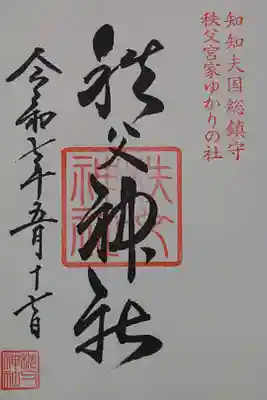 知知夫国総鎮守
秩父宮家ゆかりの社
秩父神社
秩父神社
令和七年五月十七日